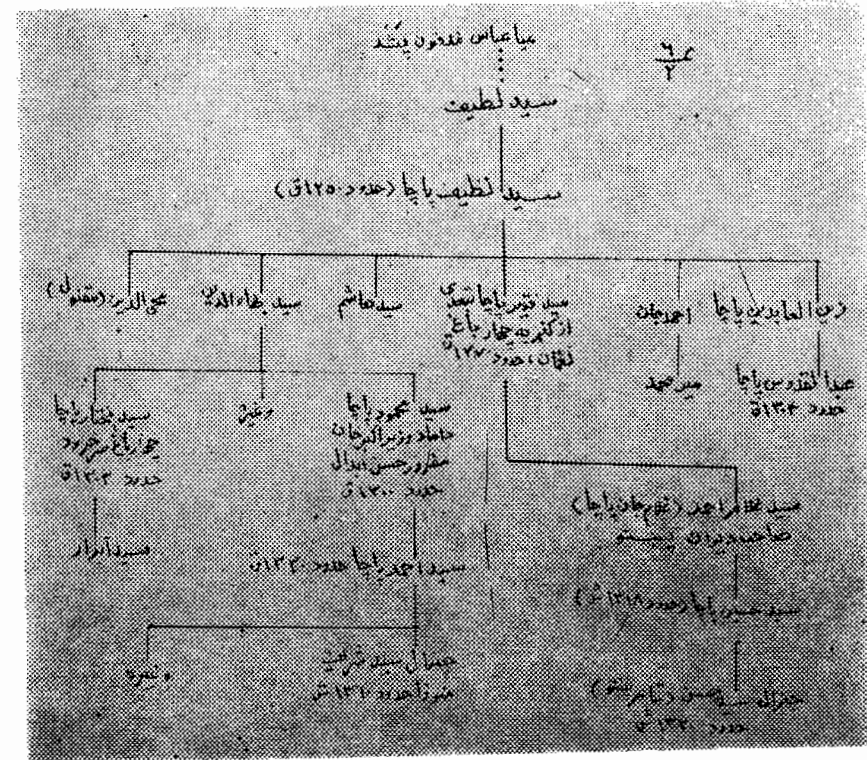 میا عباس مدفون پشد
۶
۲
سید لطیف
سید لطیف پاچا (حدود ۱۲۵۰ق)
زین العابدین پاچا
احمد جان
سید فقیر پاچا
از کنر به چهار باغ
لغمان، حدود
سید هاشم
سید بهاءالدین
محی الدین (مقتول)
عبدالقدوس پاچا
حدود ۱۳۰۴ق
میر محمد
سید محمود پاچا
داماد وزیر اکبر خان
مفرور حسن ابدال
حدود ۱۳۰۰ ق
وغیره
سید مختار پاچا
چهارباغ سرخرود
حدود ۱۳۰۳ق
سید غلام احمد (غلام جان پاچا)
صاحب دیوان پښتو
سید احمد پاچا حدود
سید حسین پاچا (حدود ۱۳۱۸ ش)
جنرال سید حسن
حدود ۱۳۲۰ ش
جنرال سید
حدود ۱۳۱۰ ش
وغیره